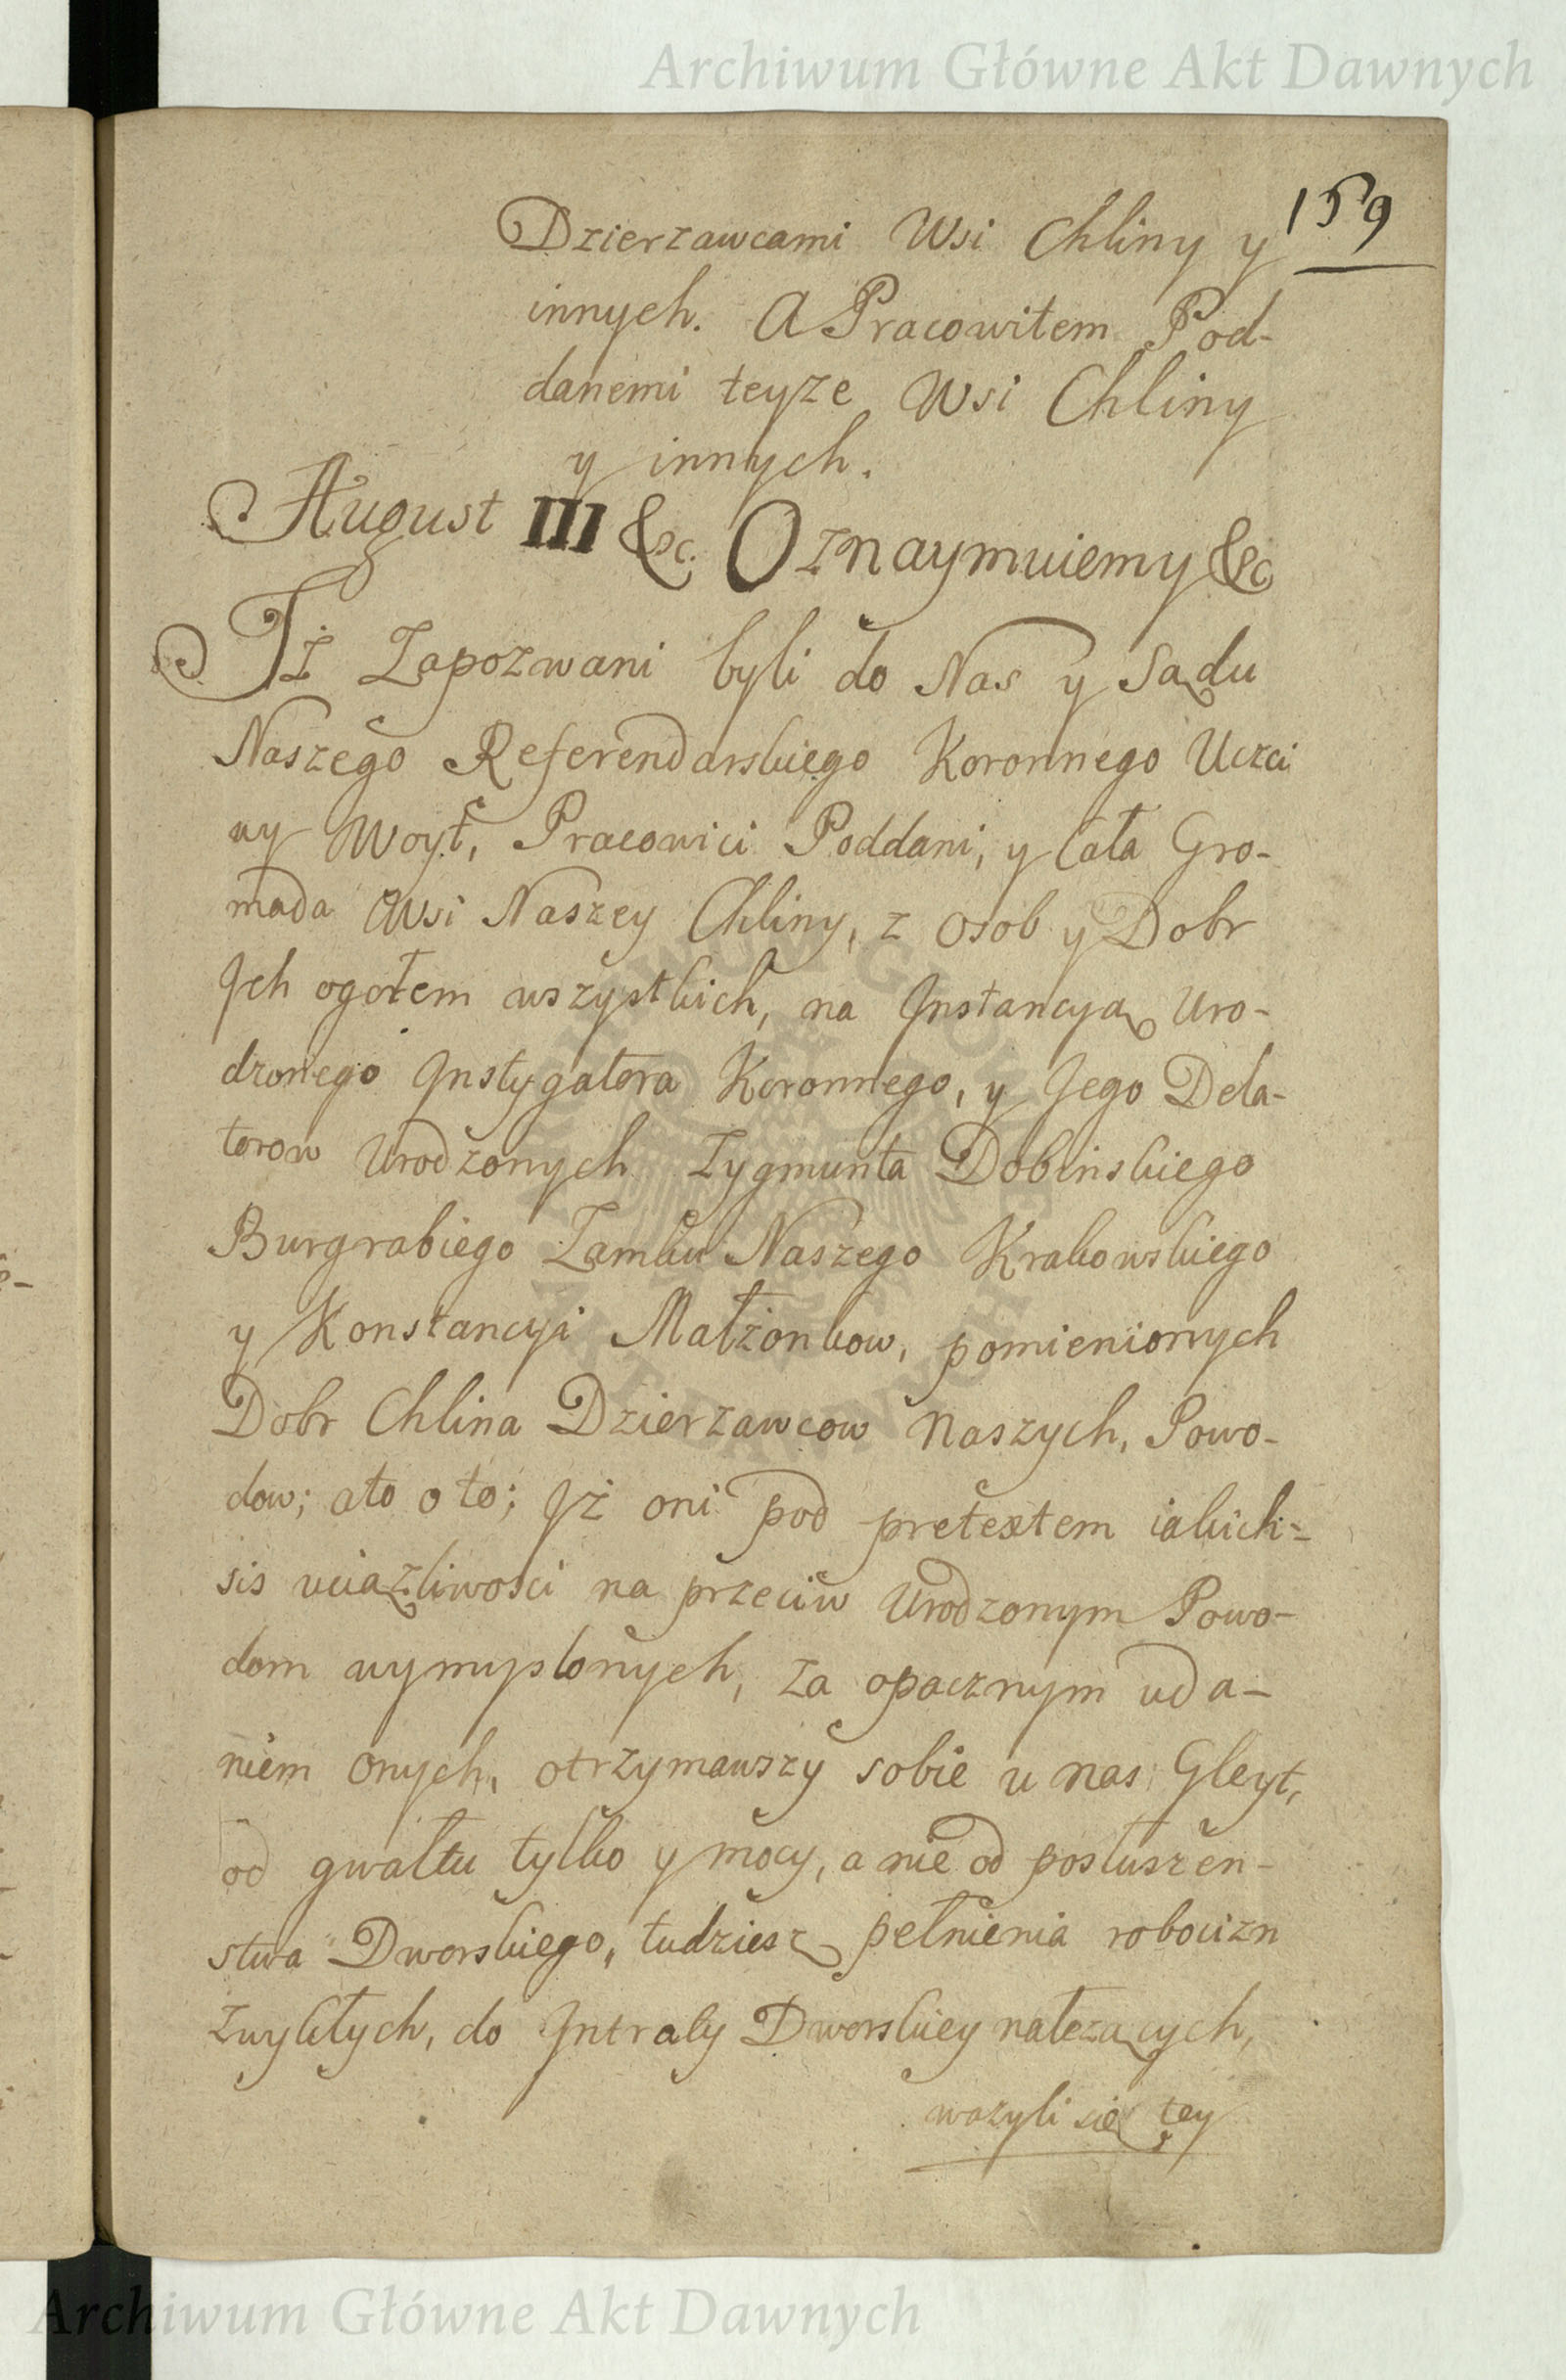 Archiwum Główne Akt Dawnych
159
Dzierzawcami Wsi Chliny y
innych. A Pracowitem Pod-
danemi teyze Wsi Chliny
y innych.
August III &c. Oznaymuiemy &c
Iż Zapozwani byli do Nas y Sądu
Naszego Referendarskiego Koronnego Uczci
wy Woyt, Pracowici Poddani, y Cała Gro-
mada Wsi Naszey Chliny, z Osob y Dobr
Ich ogołem wszystkich, na Instancyą Uro-
dzonego Instygatora Koronnego, y Jego Dela-
torow Urodzonych Zygmunta Dobinskiego
Burgrabiego Zamku Naszego Krakowskiego
y Konstancyi Małżonkow, pomienionych
Dobr Chlina Dzierzawcow Naszych, Powo-
dow; ato oto; Iż oni pod pretextem iakich-
sis uciązliwości na przeciw Urodzonym Powo-
dom wymyslonych, za opacznym uda-
niem onych, otrzymawszy sobie u nas Gleyt,
od gwałtu tylko y mocy, a nie od posłuszen-
stwa Dworskiego, tudziesz pełnienia robocizn
zwykłych, do Intraty Dworskiey nalezących,
wazyli się tey
Archiwum Główne Akt Dawnych